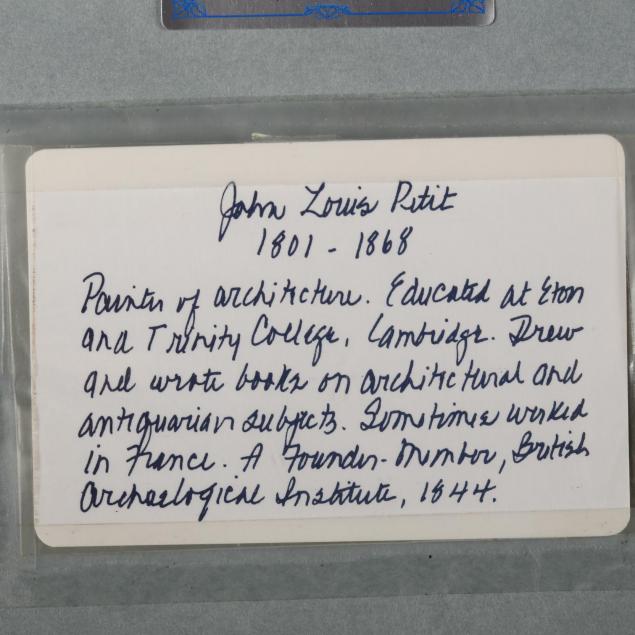 John Louis Petit
1801 - 1868
Painter of architecture. Educated at Eton
and Trinity College, Cambridge. Drew
and wrote books on architectural and
antiquarian subjects. Sometimes worked
in France. A Founder-Member, British
Archaelogical Institute, 1844.